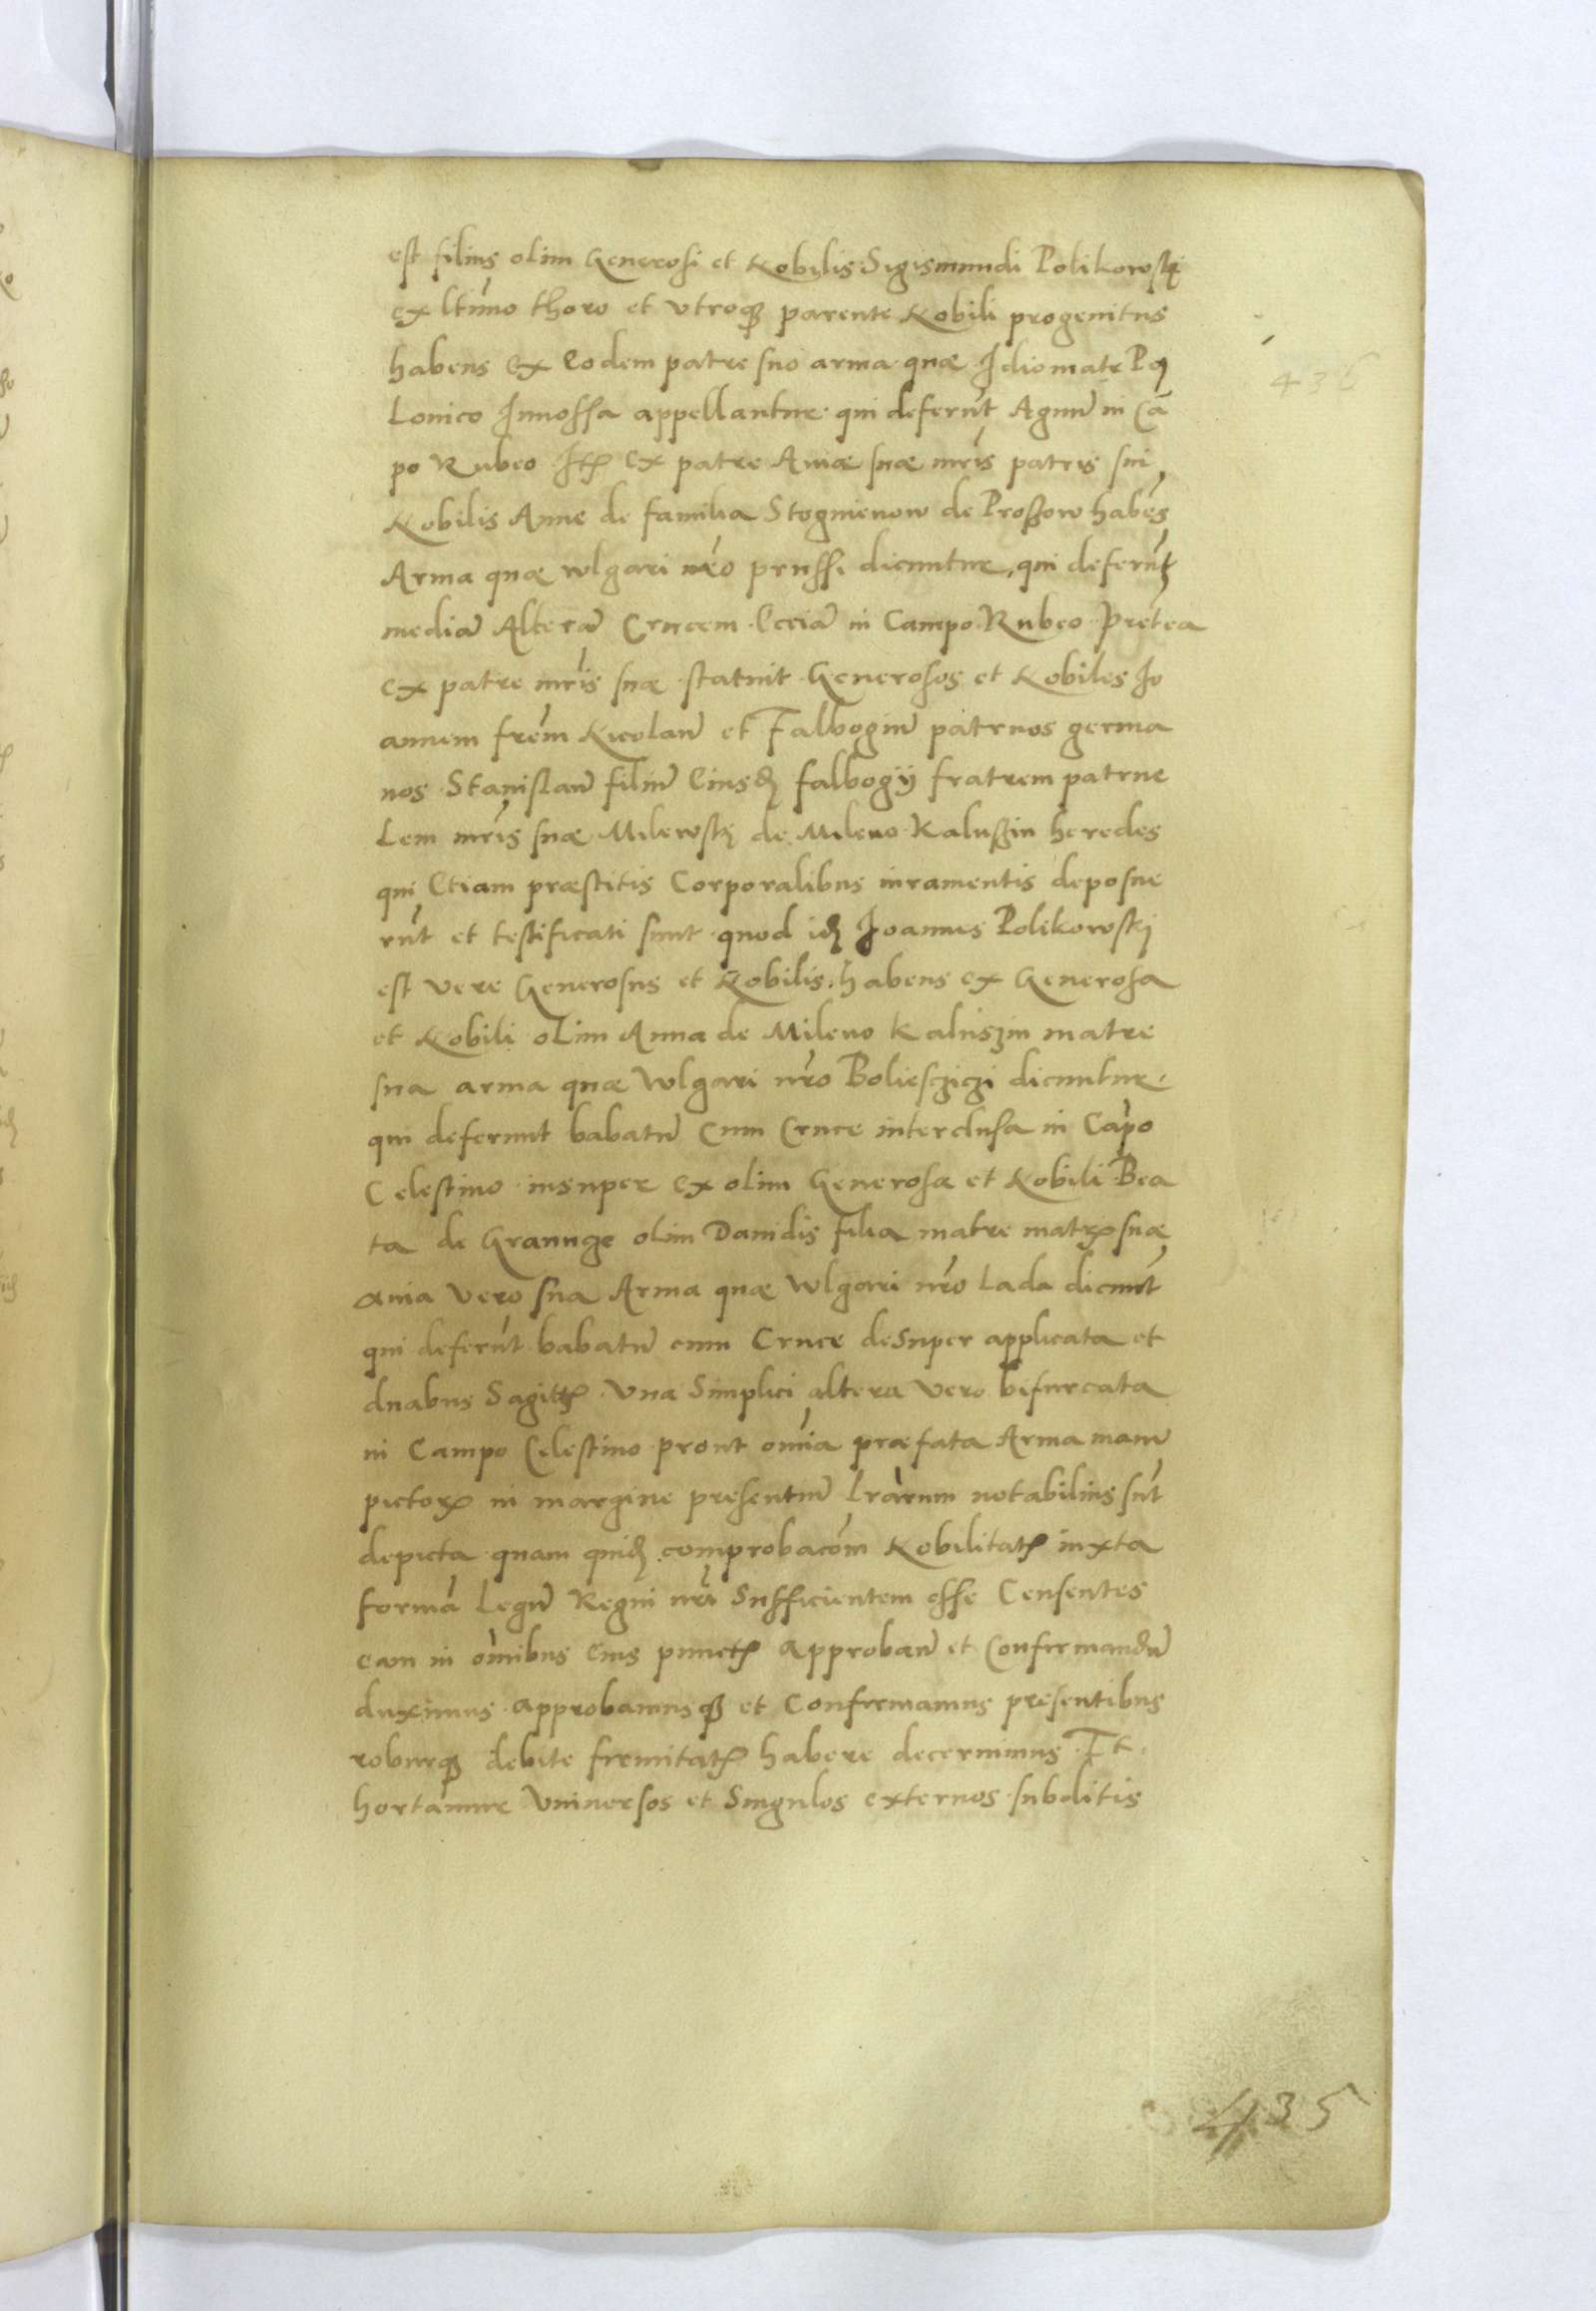 est filius olim Generosi et Nobilis Sigismundi Polikowskj
ex ltimo thoro et vtroq3 parente Nobili progenitus
habens ex eodem patre suo arma quæ Idiomate Po
lonico Junossa appellantur qui deferút Agnū in Cā
po Rubeo Itē ex patre Auiæ suæ mr̄is patris sui
Nobilis Anne de familia Stogniewow de Proszow habēs
Arma quæ wlgari nr̄o prussi dicuntur, qui deferūt
mediā Alterā Crucem etiā in Campo Rubeo Pretea
ex patre mr̄is suæ statuit Generosos et Nobiles Jo
annem frēm Nicolaū et Falbogiū patruos germa
nos Stanislaū filiū eiusd falbogij fratrem patrue
lem mr̄is suæ Milewskj de Milewo Kaluszin heredes
qui etiam præstitis Corporalibus iuramentis deposue
rūt et testificati sunt quod id Joannes Polikowskj
est vere Generosus et Nobilis habens ex Generosa
et Nobili olim Anna de Milewo Kaluszin matre
sua arma quæ Wlgari nr̄o Boliesczici dicuntur
qui deferunt babatū cum Cruce interclusa in Cāpo
Celestino insuper ex olim Generosa et Nobili Bea
ta de Grannze olim Dauidis filia matre matris suæ
auia vero sua Arma quæ Wlgari nr̄o Lada dicunt
qui deferūt babatū cum Cruce desuper applicata et
duabus Sagittis Vna Simplici altera vero bifurcata
in Campo Celestino prout omīa præfata Arma manu
pictoris in margine presentiū lrārum notabilius sūt
depicta quam quid comprobacōm Nobilitatis iuxta
formā Legū Regni nrī Sufficientem esse Censentes
eam in omībus eius punctis approban̄ et Confirmandū
duximus approbamusq3 et Confirmamus presentibus
roburq3 debite firmitatis habere decernimus Et
hortamur Vniuersos et Singulos externos subditis
435